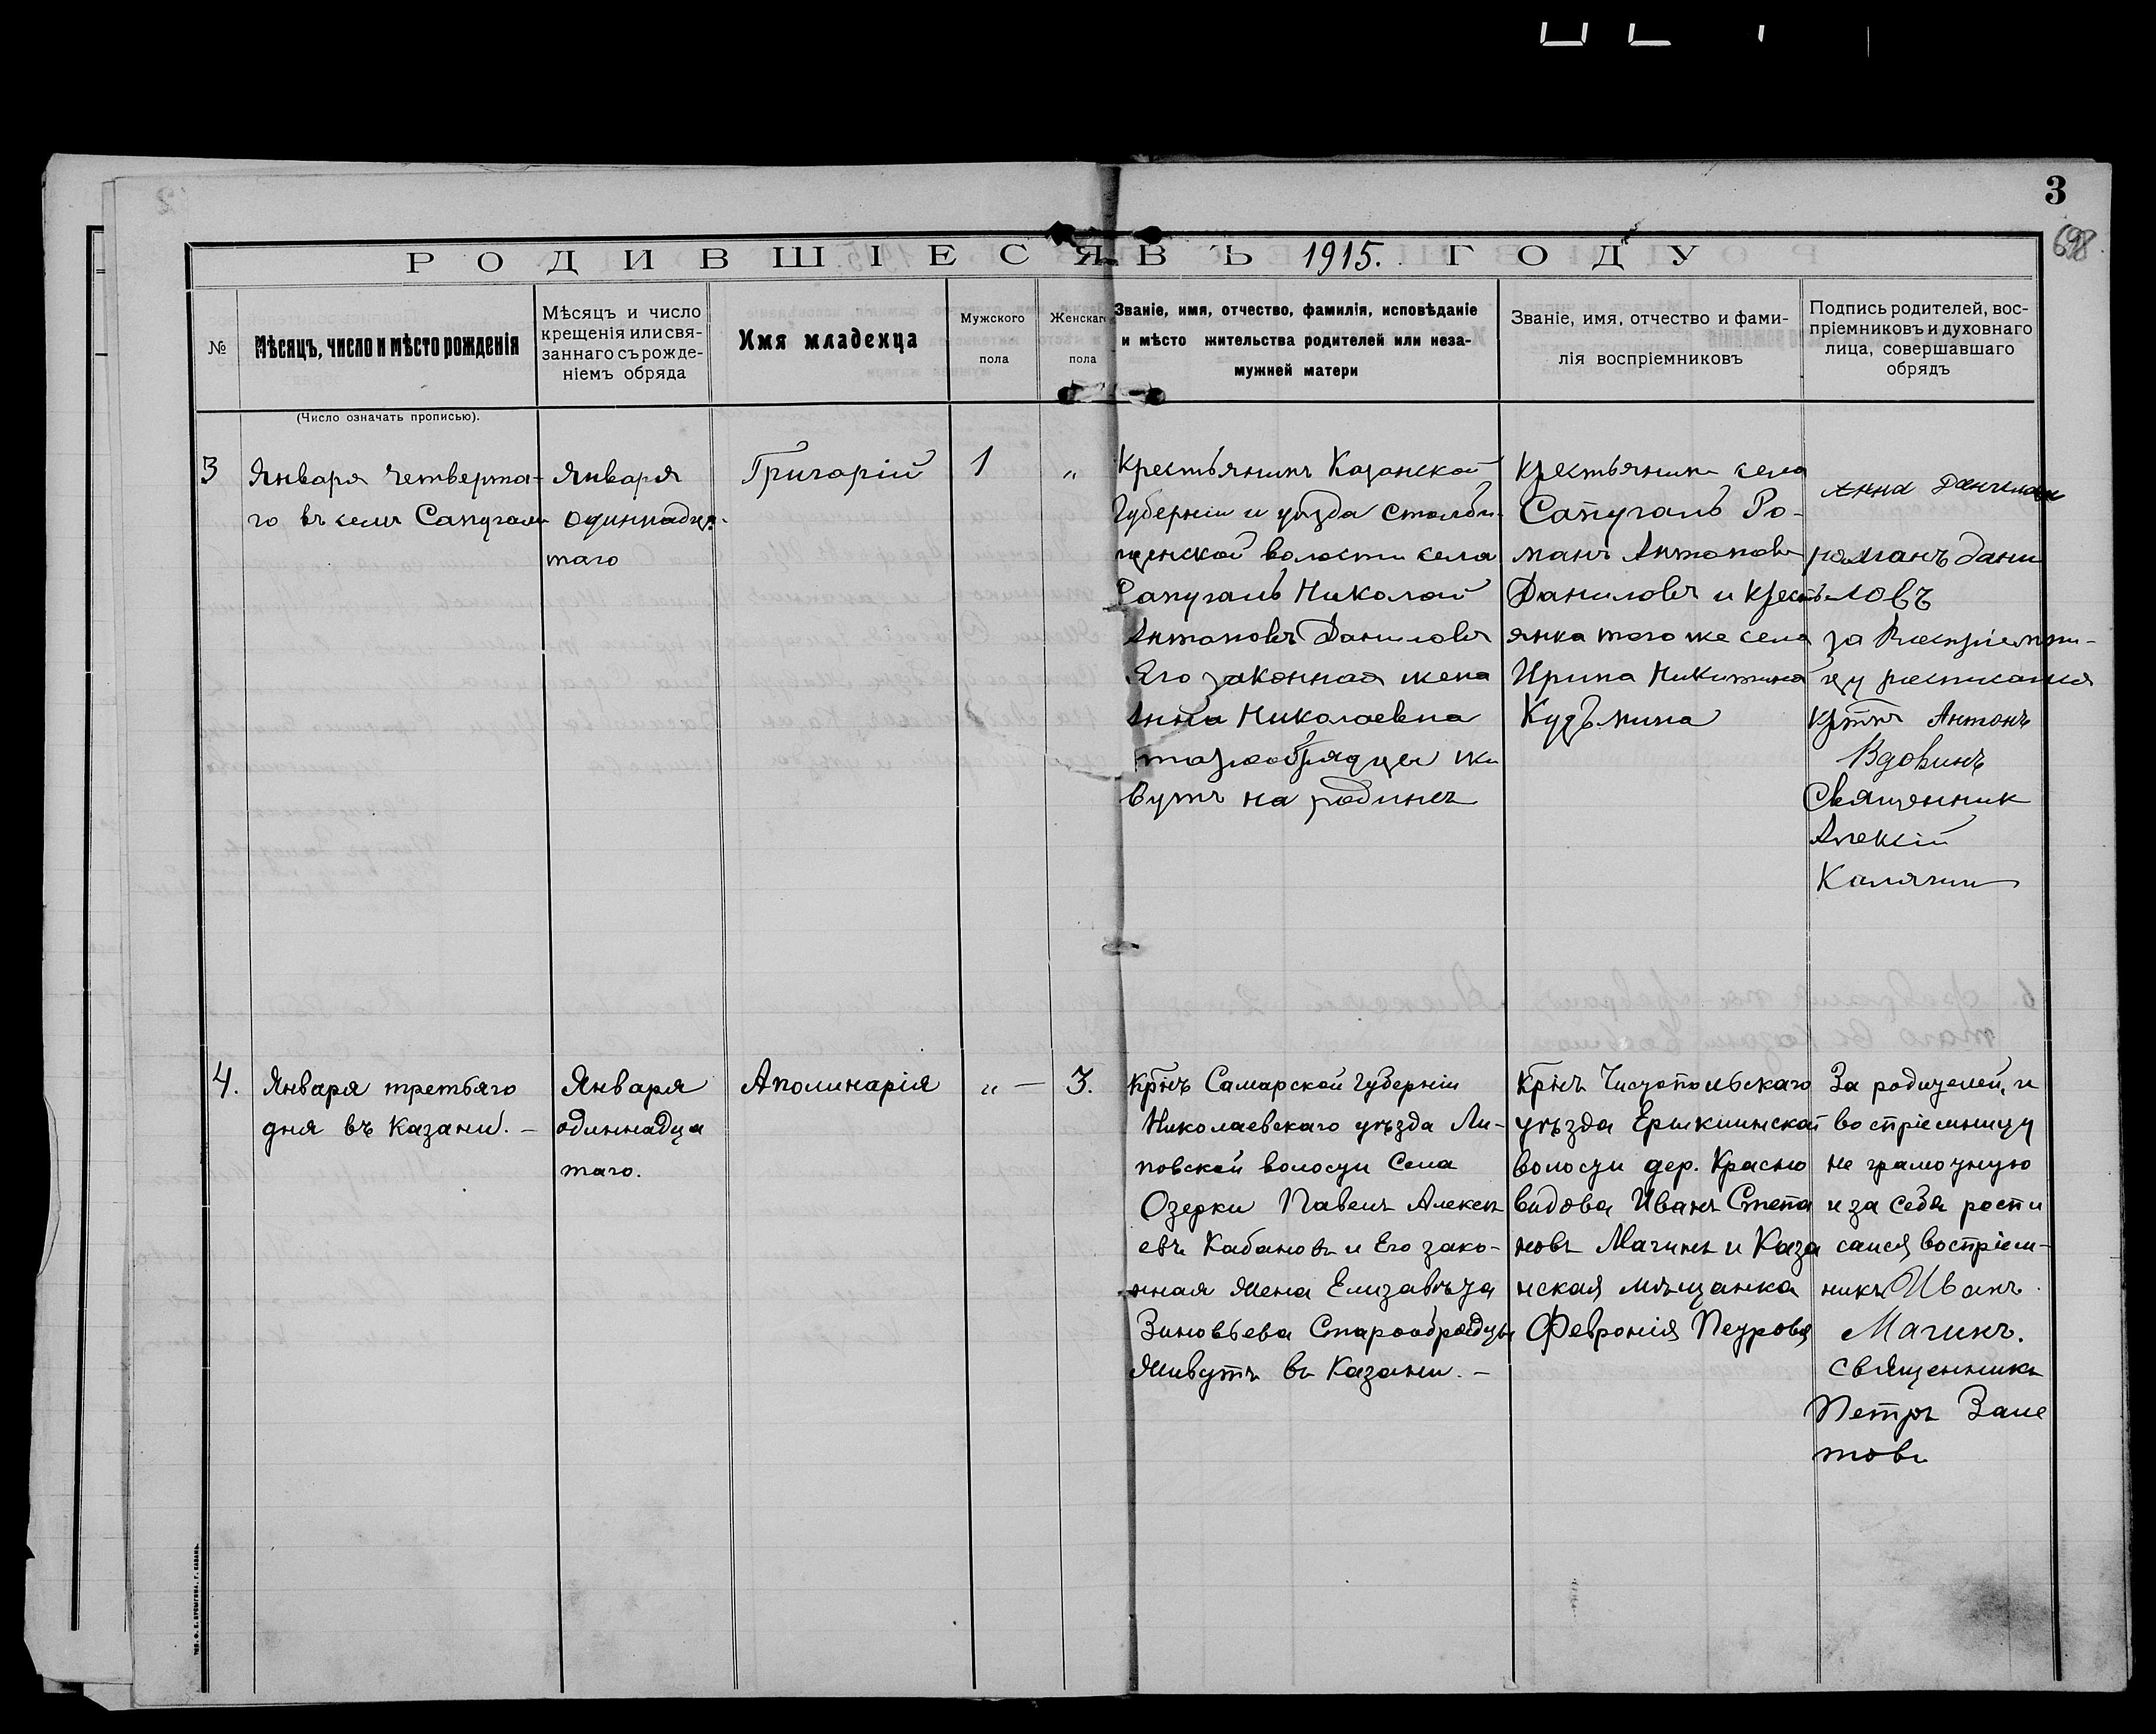 3
698
РОДИВШІЕСЯ ВЪ 1915. ГОДУ
№
Мѣсяцъ, число и мѣсто рожденія
(Число означать прописью).
Мѣсяцъ и число
крещенія или свя-
заннаго съ рожде-
ніемъ обряда
Имя младенца
Мужского
пола
Женскаго
пола
Званіе, имя, отчество, фамилія, исповѣданіе
и мѣсто жительства родителей или неза-
мужней матери
Званіе, имя, отчество и фами-
лія воспріемниковъ
Подпись родителей, вос-
пріемниковъ и духовнаго
лица, совершавшаго
обрядъ
3
Января четверта-
го въ селѣ Сапугали
Января
одиннадца-
таго
Григорій
1
„
Крестьянинъ Казанской
Губерніи и уѣзда Столби-
щенской волости села
Сапугалъ Николай
Антоновъ Даниловъ
Его законная жена
Анна Николаевна
тарообрядцы жи
вутъ на родинѣ
Крестьянинъ села
Сапугалъ Ро-
манъ Антоновъ
Даниловъ и Кресть-
янка того же села
Ирина Никитина
Кузьмина
Анна
романъ дани
ловъ
за Воспріемни-
цу росписался
Крт̅нъ Антонъ
Вдовинъ
Священник
Алексій
Калягин
4.
Января третьяго
дня въ Казани. –
Января
одиннадца
таго.
Аполинарія
„ —
3.
Крнъ Самарской Губерніи
Николаевскаго уѣзда Ли-
повской волости Села
Озерки Павелъ Алексѣ
евъ Кабановъ и Его зако-
нная жена Елизавѣта
Зиновьева Старообрядцы
Живутъ въ Казани. –
Крнъ Чистопольскаго
уѣзда Ерыклинской
волости дер. Красно
видова Иванъ Степа
новъ Магинъ и Каза
нская мѣщанка
Февронія Петрова
За родителей, и
воспріемницу
не грамотную
и за себя роспи
сался воспріем-
никъ Иванъ
Магинъ.
Священникъ
Петръ Зале
товъ